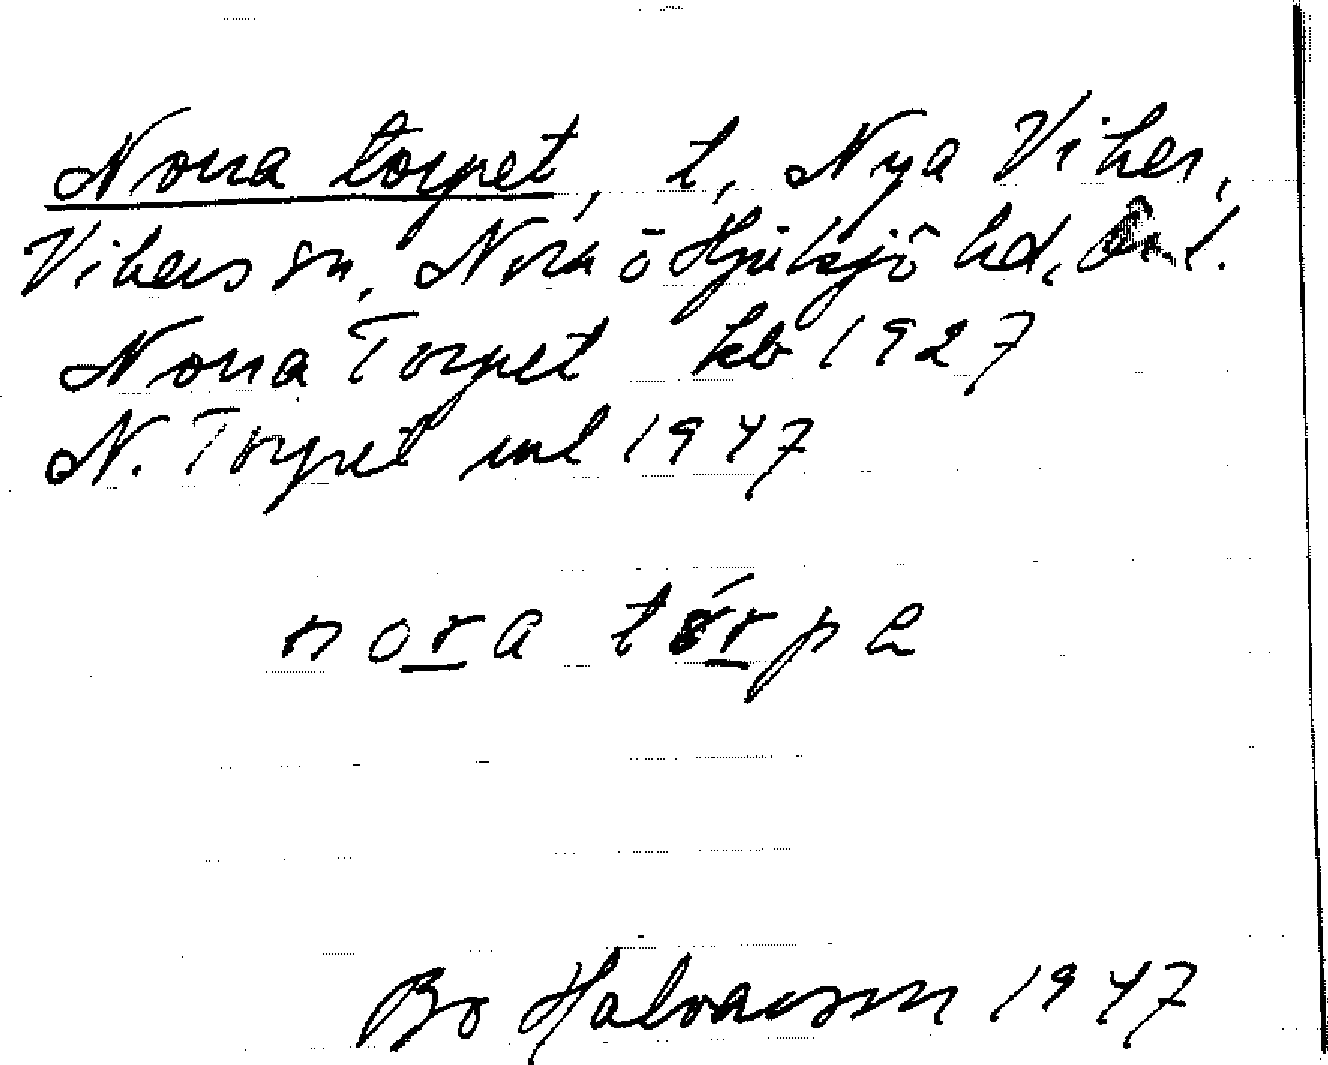 Norra torpet, t, Nya Viker,
Vikers sn, Nora o Hjulsjö hd,
Norra Torpet kb 1927
N. Torpet uml 1947
nora tórpe
Bo Halvarson 1947